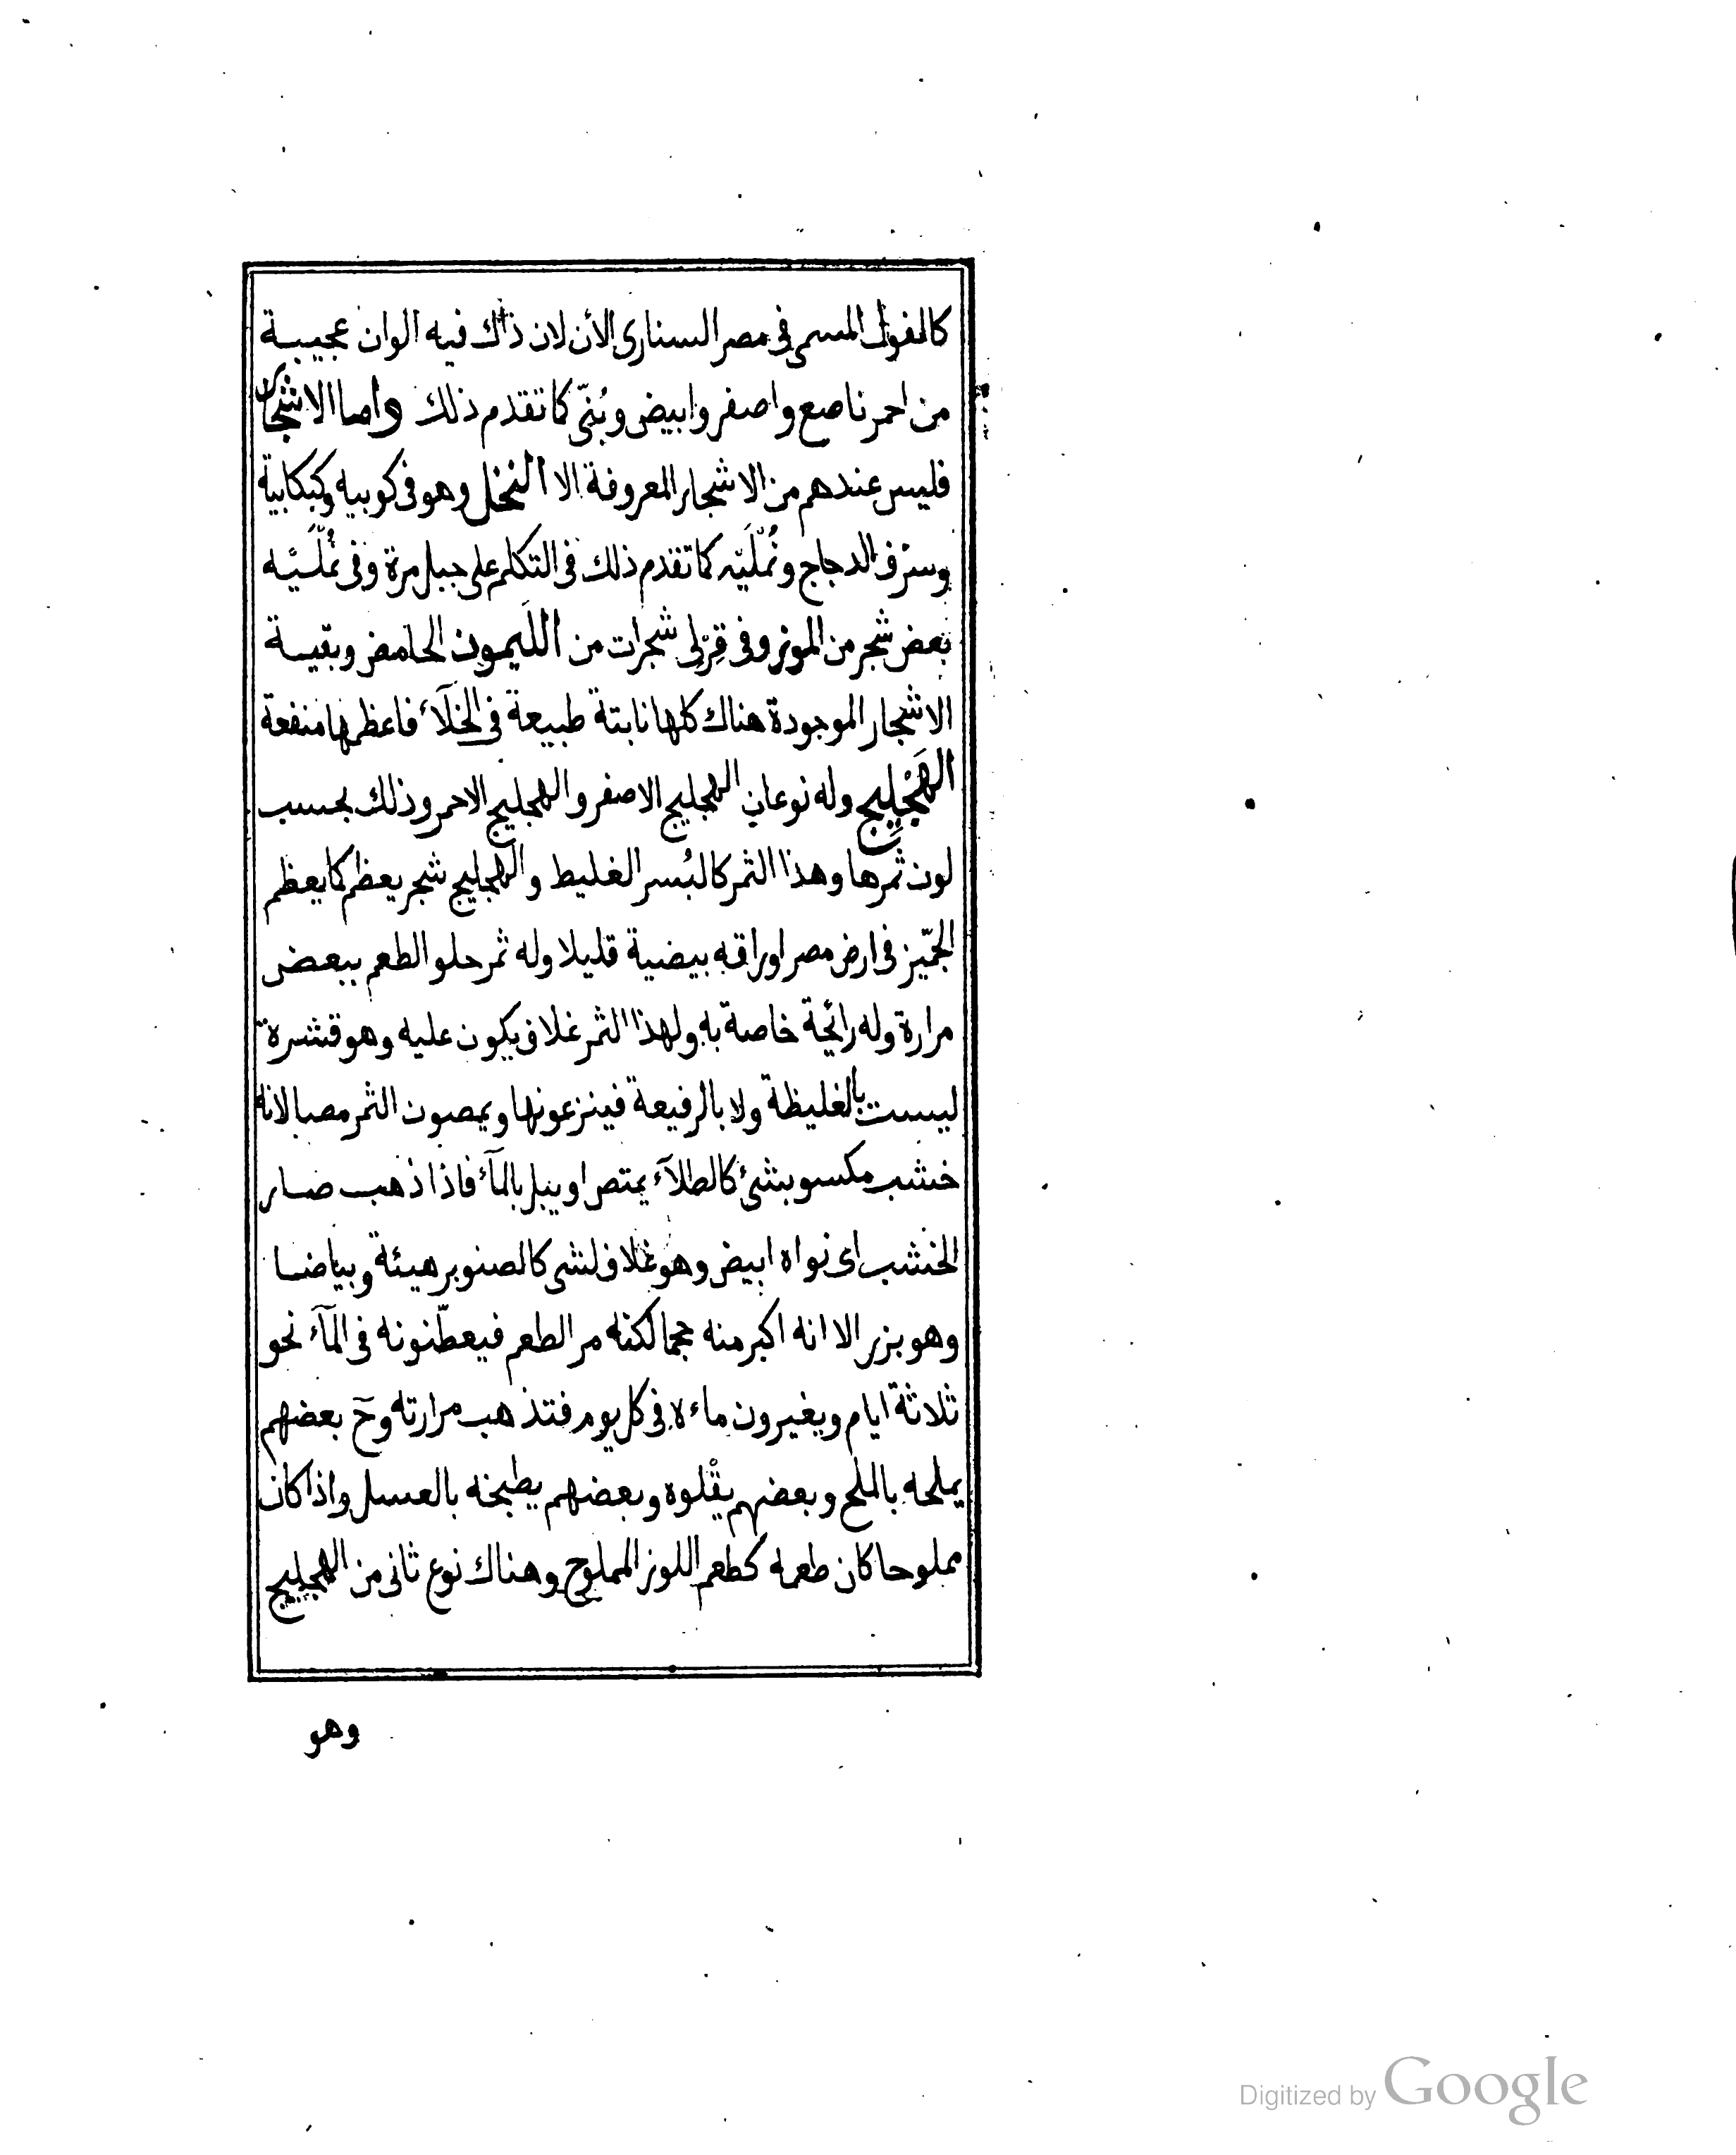 كالفول المسمى فى مصر السنارى الأن لان ذاك فيه الوان عجيبة
من احمر ناصع واصفر وابيض وبُنّى كما تقدم ذلك واما الاشجار
فليس عندهم من الاشجار المعروفة الا النخل وهو فى كوبيه وكبكابية
وسرف الدجاج ونُمُلَيّه كما تقدم ذلك فى التكلم على جبل مرة وفى نُمُلَيّه
بعض شجر من الموز وفى قِرْلِى شجرات من اللَيمون الحامض وبقيسة
الاشجار الموجودة هناك كلها نابتة طبيعة فى الخلآء فاعظمها منفعة
الهَجْلِيج وله نوعان الهجليج الاصفر والهجليج الاحمر وذلك بحسب
لون ثمرها وهذا الثمر كالبُسر الغليط والهجليج شجر يعظم كما يعظم
الجمّيز فى ارض مصر اوراقه بيضية قليلا وله ثمر حلو الطعم ببعض
مرارة وله رائحة خاصة به ولهذا الثمر غلاف يكون عليه وهو قشرة
ليست بالغليظة ولا بالرفيعة فينزعونها ويمصون الثمر مصا لانه
خشب مكسو بشئ كالطلآء يمتص او يبل بالمآء فاذا ذهب صار
الخشب اى نواه ابيض وهو غلاف لشى كالصنوبر هيئة وبياضا
وهو بزر الا انه اكبر منه حجما لكنه مر الطعم فيعطّنونه فى المآء نحو
ثلاثة ايام ويغيرون ماءه فى كل يوم فتذهب مرارته وحَ بعضهم
يملحه بالملح وبعضهم يقْلوه وبعضهم يطبخه بالعسل واذا كان
مملوحا كان طعمه كطعم اللوز المملوح وهناك نوع ثانى من الهجليج
وهو
Digitized by Google